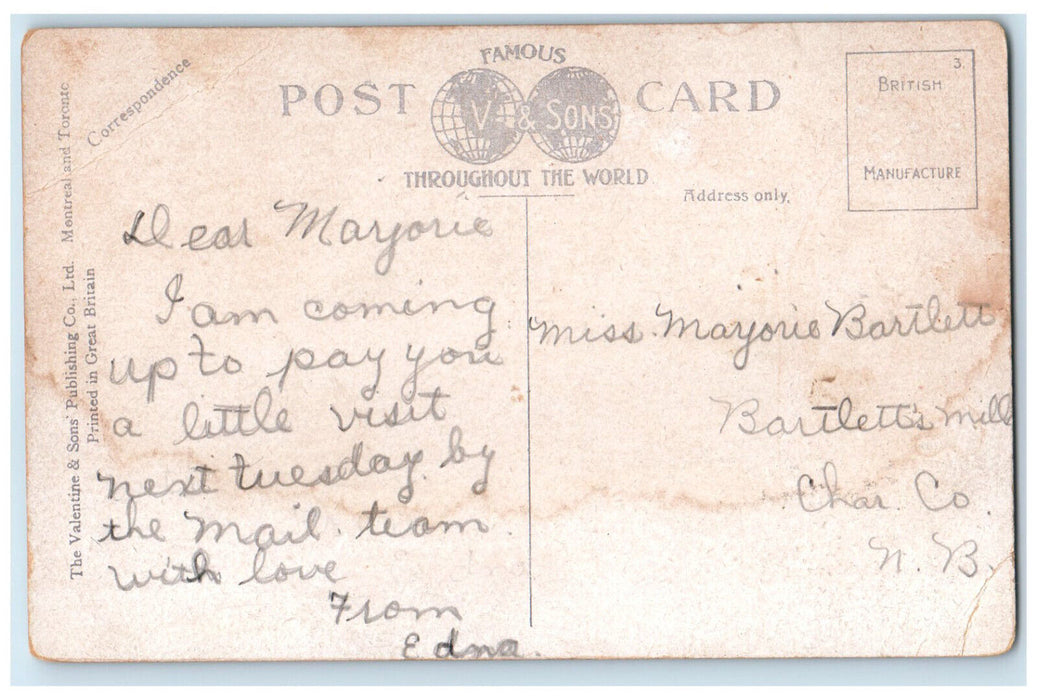 FAMOUS
POST CARD
V. & SONS
THROUGHOUT THE WORLD
Correspondence
Address only.
3.
BRITISH
MANUFACTURE
The Valentine & Sons' Publishing Co., Ltd. Montreal and Toronto
Printed in Great Britain
Dear Marjorie
I am coming
up to pay you
a little visit
next tuesday by
the mail team
with love
From
Edna.
Miss Marjorie Bartlett
Bartlett's Mills
Char. Co.
N. B.